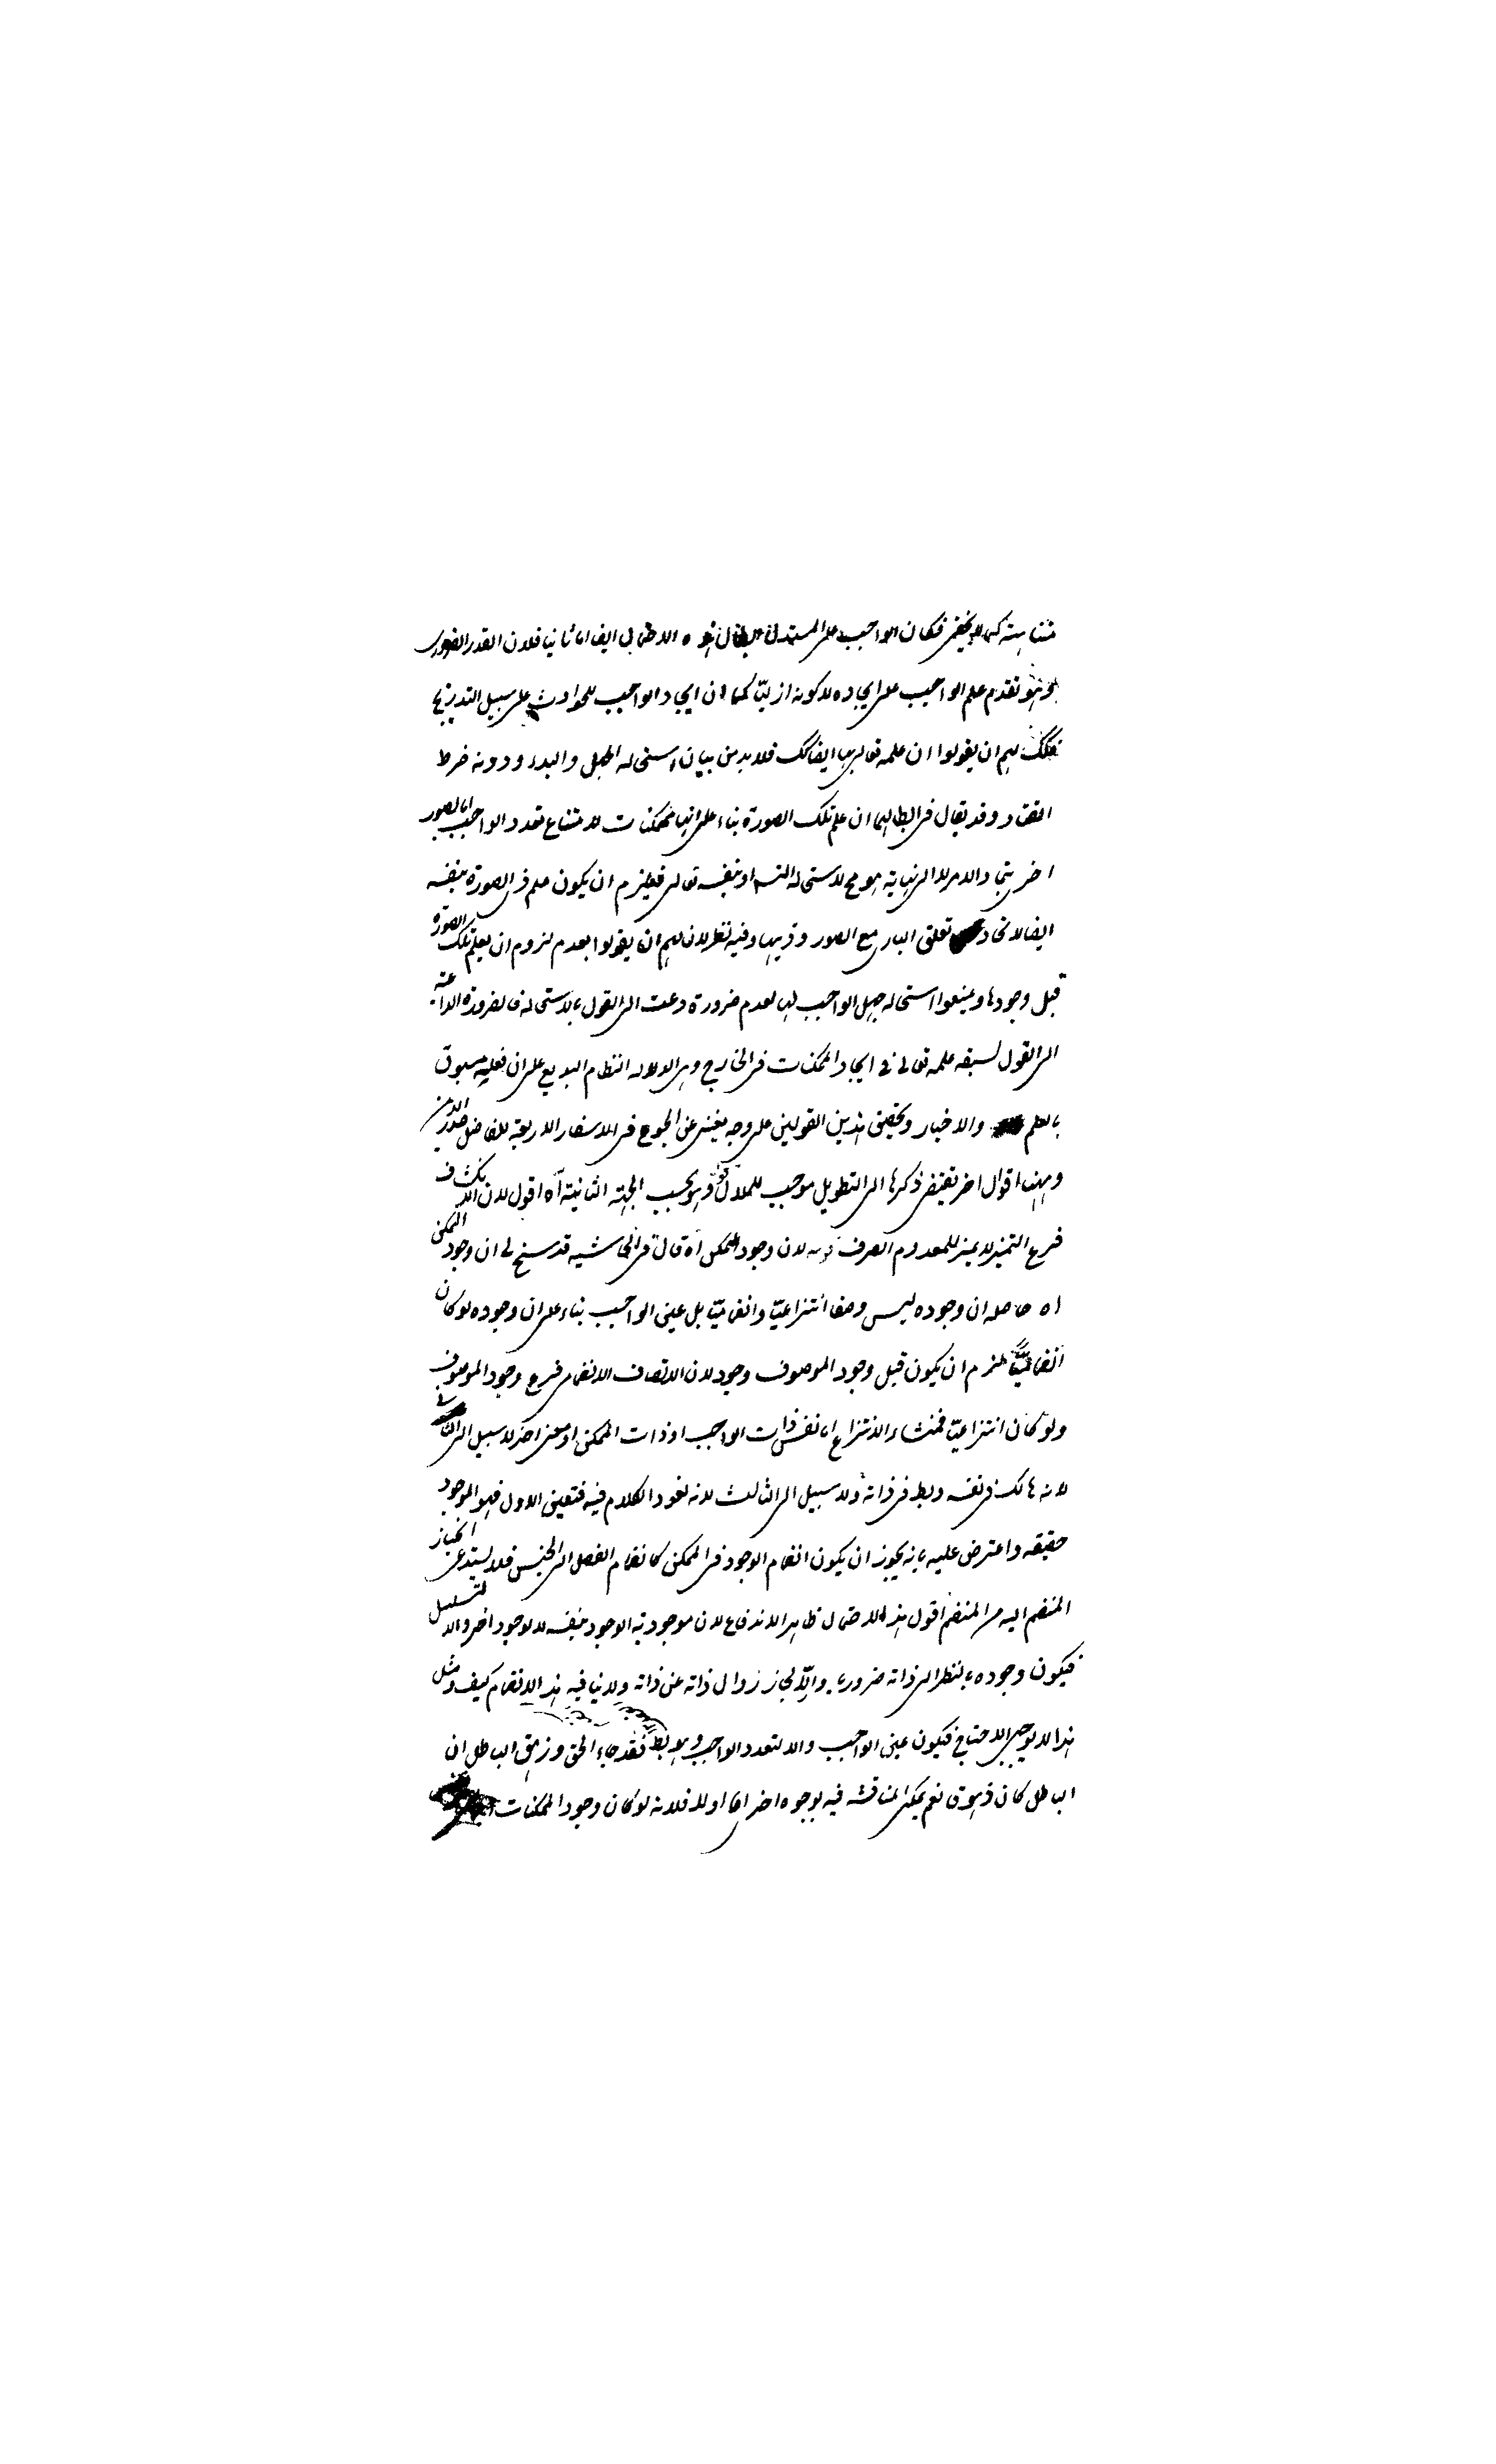 متناهية كما لا يخفى فكان الواجب على المستدل ابطال هذه الاحتمال ايضا اما ثانيا فلان القدر الضروري
هو تقدم علم الواجب على ايجاده لا كونه ازليّا كما ان ايجاد الواجب للحوادث على سبيل التدريج
فكك لهم ان يقولوا ان علمه تعالى بها ايضا كك فلا بد من بيان استحالة الجهل والبداء ودونه خرط
القتاد وقد يقال في ابطالها ان علم تلك الصورة بناء على انها ممكنات لامتناع تعدد الواجب اما بصور
اخرى والامر لا الى نهاية هو مح لاستحالة التس او بنفسه تعالى فيلزم ان يكون علم ذي الصورة بنفسه
ايضا لاتحاد تعلق الباري مع الصور وذيها وفيه نظر لان لهم ان يقولوا بعدم لزوم ان يعلم تلك الصورة
قبل وجودها ويمنعوا استحالة جهل الواجب لها لعدم ضرورة دعت الى القول بالاستحالة فالضرورة الداعية
الى القول لسبقه علمه تعالى في ايجاد الممكنات في الخارج وهي الدلالة النظام البديع على ان فعله مسبوق
بالعلم والاختيار وتحقيق هذين القولين على وجه يغني عن الجوع في الاسفار الاربعة للفاضل صدر الدين
وههنا اقوال اخر تفتضي ذكرها الى التطويل موجب للملال قوله وهو بحسب الجهة الثانية اه اقول لان الانكشاف
فرع التميز لا يميز للمعدوم الصرف قوله لان وجود الممكن اه قال في الحاشيه قد سنح لي ان وجود الممكن
اه حاصله ان وجوده ليس وصفا انتزاعيّا وانضاميّا بل عين الواجب بناء على ان وجوده لو كان
انضاميّا يلزم ان يكون قبل وجود الموصوف وجود لان الاتصاف الانضامي فرع وجود الموصوف
ولو كان انتزاعيّا فمنشاء الانتزاع اما نفس ذات الواجب او ذات الممكن او معنى اخر لا سبيل الى الثاني
لانه هالك في نفسه وبط في ذاته ولا سبيل الى الثالث لانه نعود الكلام فيه فتعين الاول فهو الموجود
حقيقه واعترض عليه بانه يجوز ان يكون انضام الوجود في الممكن كانضام الفصل الى الجنس فلا يستدعي امتياز
المنضم اليه من المنضم اقول هذا الاحتمال ظاهر الاندفاع لان موجودية الوجود بنفسه لا لوجود اخر والا لتسلسل
فيكون وجوده بالنظر الى ذاته ضروريا والّا لجاز زوال ذاته عن ذاته ولا ينافيه هذا الانضام كيف ومثل
هذا لا يوجب الاحتياج فيكون عين الواجب والا لتعدد الواجب وهو بط فقد جاء الحق وزهق الباطل ان
الباطل كان زهوقا نعم يمكن المناقشه فيه بوجوه اخر اما اولا فلانه لو كان وجود الممكنات